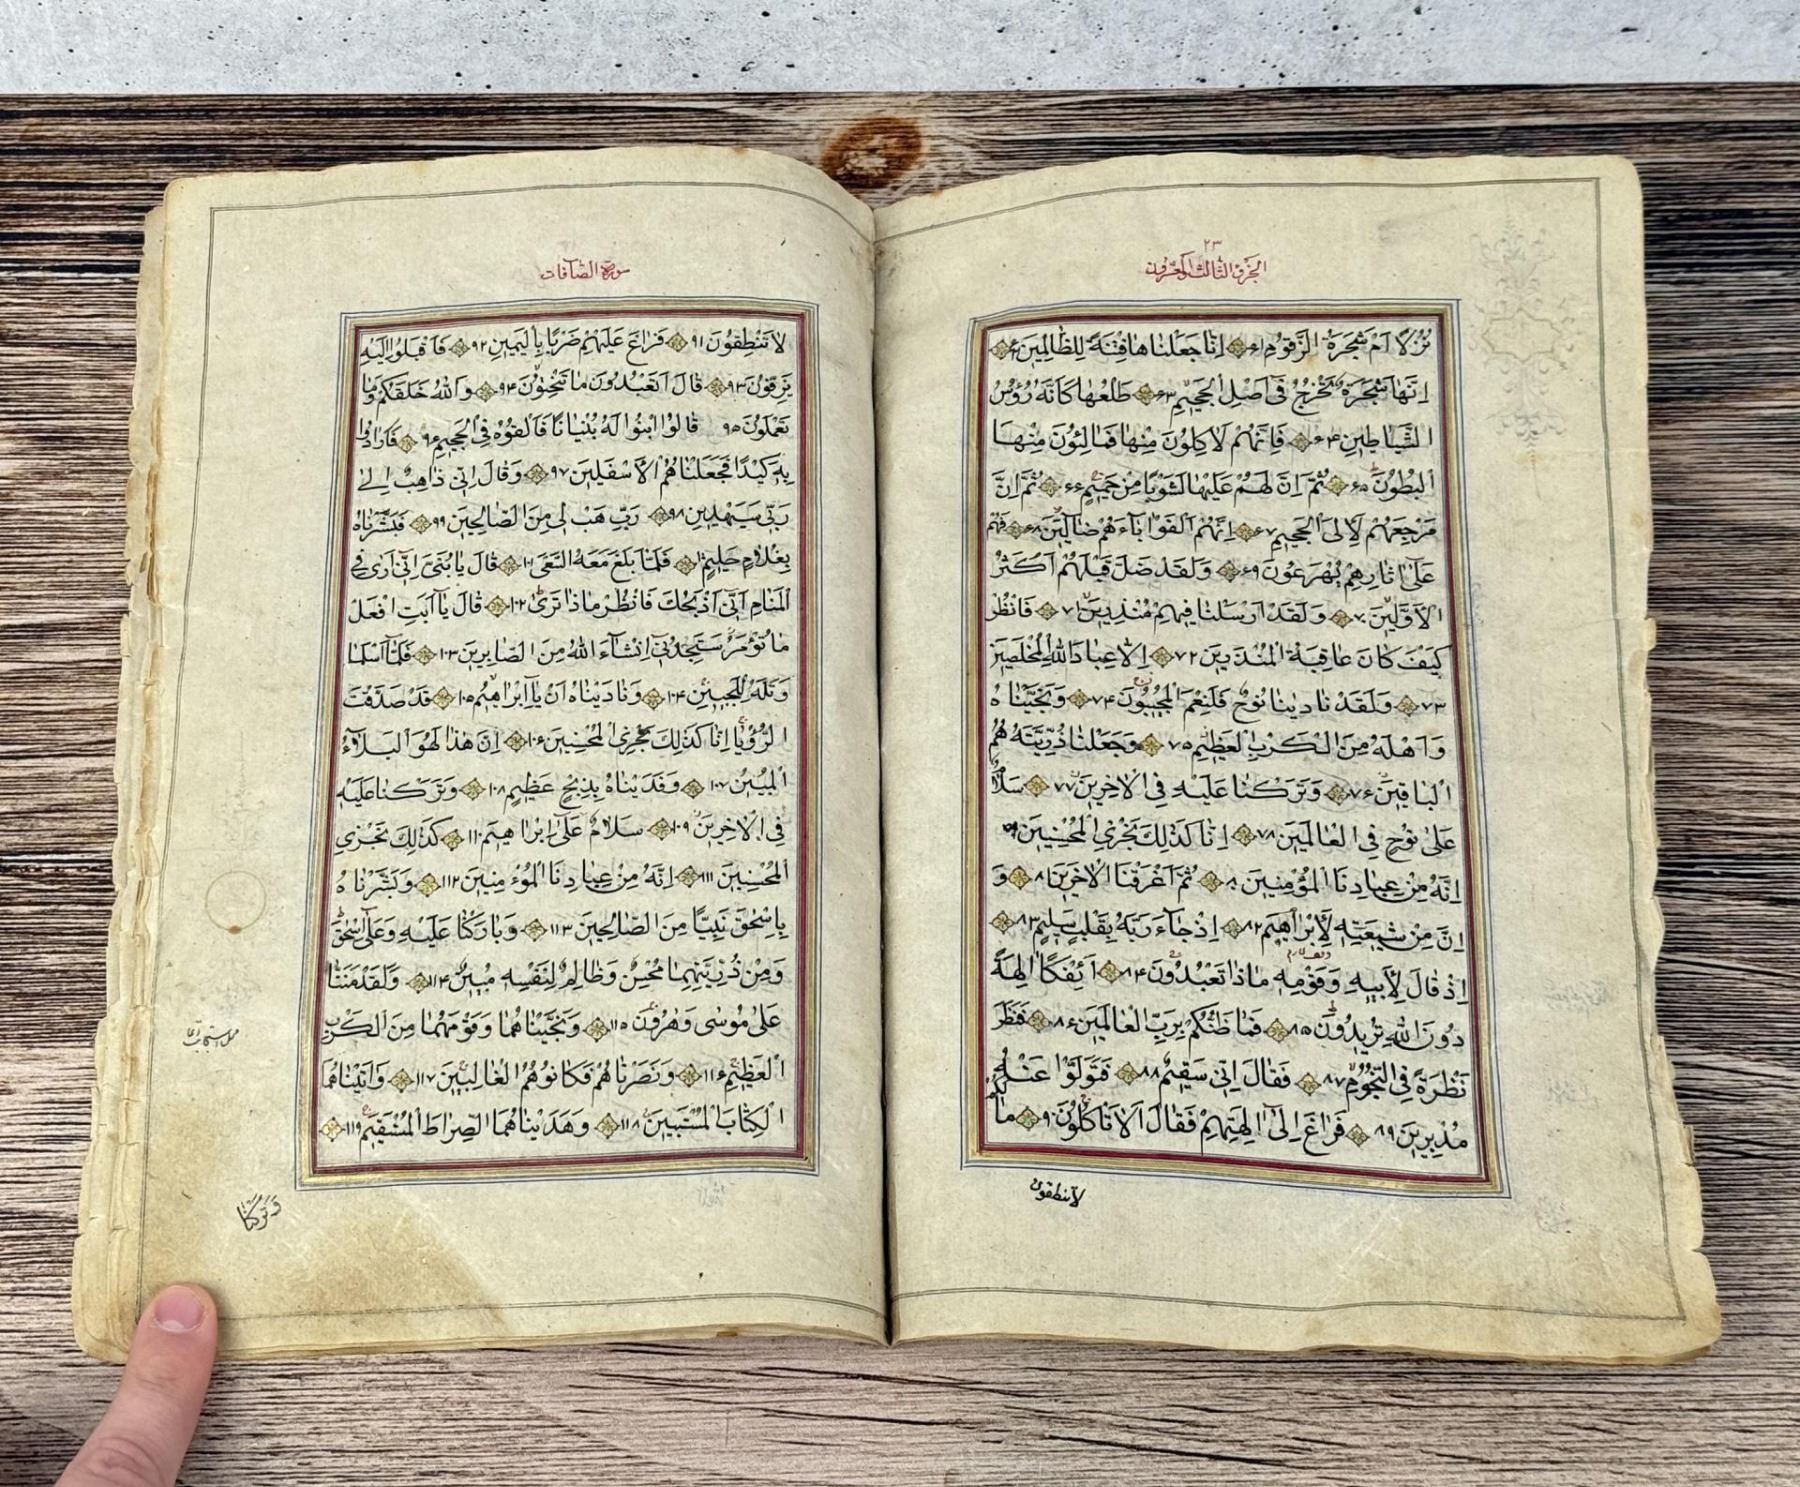 ٢٣
الجزؤ الثالث والعشرون
نُزُلًا اَمْ شَجَرَةُ الزَّقُّومِ ۶۱ اِنّا جَعَلْناها فِتْنَةً لِلظّالِمينَ ۶۲
اِنَّها شَجَرَةٌ تَخْرُجُ فى اَصْلِ الْجَحيمِ ۶۳ طَلْعُها كَاَنَّهُ رُؤُسُ
الشَّياطينِ ۶۴ فَاِنَّهُمْ لَاٰكِلُونَ مِنْها فَمالِئُونَ مِنْهَا
الْبُطُونَ ۶۵ ثُمَّ اِنَّ لَهُمْ عَلَيْها لَشَوْبًا مِنْ حَميمٍ ۶۶ ثُمَّ اِنَّ
مَرْجِعَهُمْ لَاِلَى الْجَحيمِ ۶۷ اِنَّهُمْ اَلْفَوْا اٰباءَهُمْ ضالّينَ ۶۸ فَهُمْ
عَلىٰ اٰثارِهِمْ يُهْرَعُونَ ۶۹ وَلَقَدْ ضَلَّ قَبْلَهُمْ اَكْثَرُ
الْاَوَّلينَ ۷۰ وَلَقَدْ اَرْسَلْنا فيهِمْ مُنْذِرينَ ۷۱ فَانْظُرْ
كَيْفَ كانَ عاقِبَةُ الْمُنْذَرينَ ۷۲ اِلّا عِبادَ اللهِ الْمُخْلَصينَ
۷۳ وَلَقَدْ نادينا نُوحٌ فَلَنِعْمَ الْمُجيبُونَ ۷۴ وَنَجَّيْناهُ
وَاَهْلَهُ مِنَ الْكَرْبِ الْعَظيمِ ۷۵ وَجَعَلْنا ذُرِّيَّتَهُ هُمُ
الْباقينَ ۷۶ وَتَرَكْنا عَلَيْهِ فِى الْاٰخِرينَ ۷۷ سَلامٌ
عَلىٰ نُوحٍ فِى الْعالَمينَ ۷۸ اِنّا كَذٰلِكَ نَجْزِى الْمُحْسِنينَ ۷۹
اِنَّهُ مِنْ عِبادِنَا الْمُؤْمِنينَ ۸۰ ثُمَّ اَغْرَقْنَا الْاٰخَرينَ ۸۱ وَ
اِنَّ مِنْ شيعَتِهِ لَاِبْراهيمَ ۸۲ اِذْ جاءَ رَبَّهُ بِقَلْبٍ سَليمٍ ۸۳
اِذْ قالَ لِاَبيهِ وَقَوْمِهِ ماذا تَعْبُدُونَ ۸۴ اَئِفْكًا اٰلِهَةً
دُونَ اللهِ تُريدُونَ ۸۵ فَما ظَنُّكُمْ بِرَبِّ الْعالَمينَ ۸۶ فَنَظَرَ
نَظْرَةً فِى النُّجُومِ ۸۷ فَقالَ اِنّى سَقيمٌ ۸۸ فَتَوَلَّوْا عَنْهُ
مُدْبِرينَ ۸۹ فَراغَ اِلىٰ اٰلِهَتِهِمْ فَقالَ اَلا تَأْكُلُونَ ۹۰ ما لَكُمْ
لاتنطقون
سورة الصّافات
لا تَنْطِقُونَ ۹۱ فَراغَ عَلَيْهِمْ ضَرْبًا بِالْيَمينِ ۹۲ فَاَقْبَلُوا اِلَيْهِ
يَزِفُّونَ ۹۳ قالَ اَتَعْبُدُونَ ما تَنْحِتُونَ ۹۴ وَاللهُ خَلَقَكُمْ وَما
تَعْمَلُونَ ۹۵ قالُوا ابْنُوا لَهُ بُنْيانًا فَاَلْقُوهُ فِى الْجَحيمِ ۹۶ فَاَرادُوا
بِهِ كَيْدًا فَجَعَلْناهُمُ الْاَسْفَلينَ ۹۷ وَقالَ اِنّى ذاهِبٌ اِلىٰ
رَبّى سَيَهْدينِ ۹۸ رَبِّ هَبْ لى مِنَ الصّالِحينَ ۹۹ فَبَشَّرْناهُ
بِغُلامٍ حَليمٍ ۱۰۰ فَلَمّا بَلَغَ مَعَهُ السَّعْىَ ۱۰۱ قالَ يا بُنَىَّ اِنّى اَرىٰ فِى
الْمَنامِ اَنّى اَذْبَحُكَ فَانْظُرْ ماذا تَرىٰ ۱۰۲ قالَ يا اَبَتِ افْعَلْ
ما تُؤْمَرُ سَتَجِدُنى اِنْشاءَ اللهُ مِنَ الصّابِرينَ ۱۰۳ فَلَمّا اَسْلَما
وَتَلَّهُ لِلْجَبينِ ۱۰۴ وَنادَيْناهُ اَنْ يا اِبْراهيمُ ۱۰۵ قَدْ صَدَّقْتَ
الرُّؤْيا اِنّا كَذٰلِكَ نَجْزِى الْمُحْسِنينَ ۱۰۶ اِنَّ هٰذا لَهُوَ الْبَلاؤُ
الْمُبينُ ۱۰۷ وَفَدَيْناهُ بِذِبْحٍ عَظيمٍ ۱۰۸ وَتَرَكْنا عَلَيْهِ
فِى الْاٰخِرينَ ۱۰۹ سَلامٌ عَلىٰ اِبْراهيمَ ۱۱۰ كَذٰلِكَ نَجْزِى
الْمُحْسِنينَ ۱۱۱ اِنَّهُ مِنْ عِبادِنَا الْمُؤْمِنينَ ۱۱۲ وَبَشَّرْناهُ
بِاِسْحٰقَ نَبِيًّا مِنَ الصّالِحينَ ۱۱۳ وَبارَكْنا عَلَيْهِ وَعَلىٰ اِسْحٰقَ
وَمِنْ ذُرِّيَّتِهِما مُحْسِنٌ وَظالِمٌ لِنَفْسِهِ مُبينٌ ۱۱۴ وَلَقَدْ مَنَنّا
عَلىٰ مُوسى وَهٰرُونَ ۱۱۵ وَنَجَّيْناهُما وَقَوْمَهُما مِنَ الْكَرْبِ
الْعَظيمِ ۱۱۶ وَنَصَرْناهُمْ فَكانُوا هُمُ الْغالِبينَ ۱۱۷ وَاٰتَيْناهُمَا
الْكِتابَ الْمُسْتَبينَ ۱۱۸ وَهَدَيْناهُمَا الصِّراطَ الْمُسْتَقيمَ ۱۱۹
وَتَرَكْنا